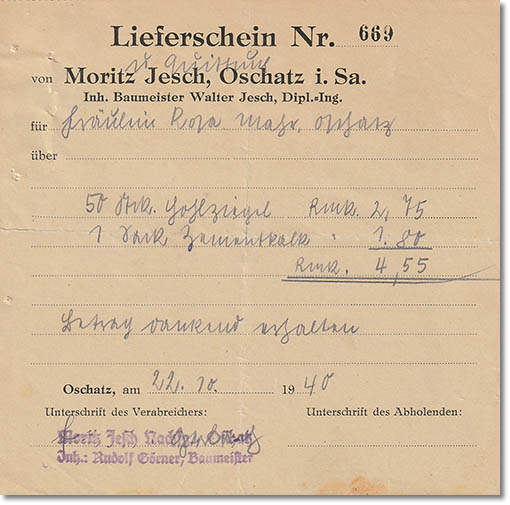 Lieferschein Nr. 669
u. Quittung
von Moritz Jesch, Oschatz i. Sa.
Inh. Baumeister Walter Jesch, Dipl.-Ing.
für Fräulein Rosa Mahr, Oschatz
über
50 Stck. Hohlziegel Rmk. 2,75
1 Sack Zementkalk " 1.80
Rmk. 4,55
Betrag dankend erhalten
Oschatz, am 22. 10. 1940
Unterschrift des Verabreichers: Unterschrift des Abholenden:
Moritz Jesch Nachf., Oschatz
Inh.: Rudolf Görner, Baumeister